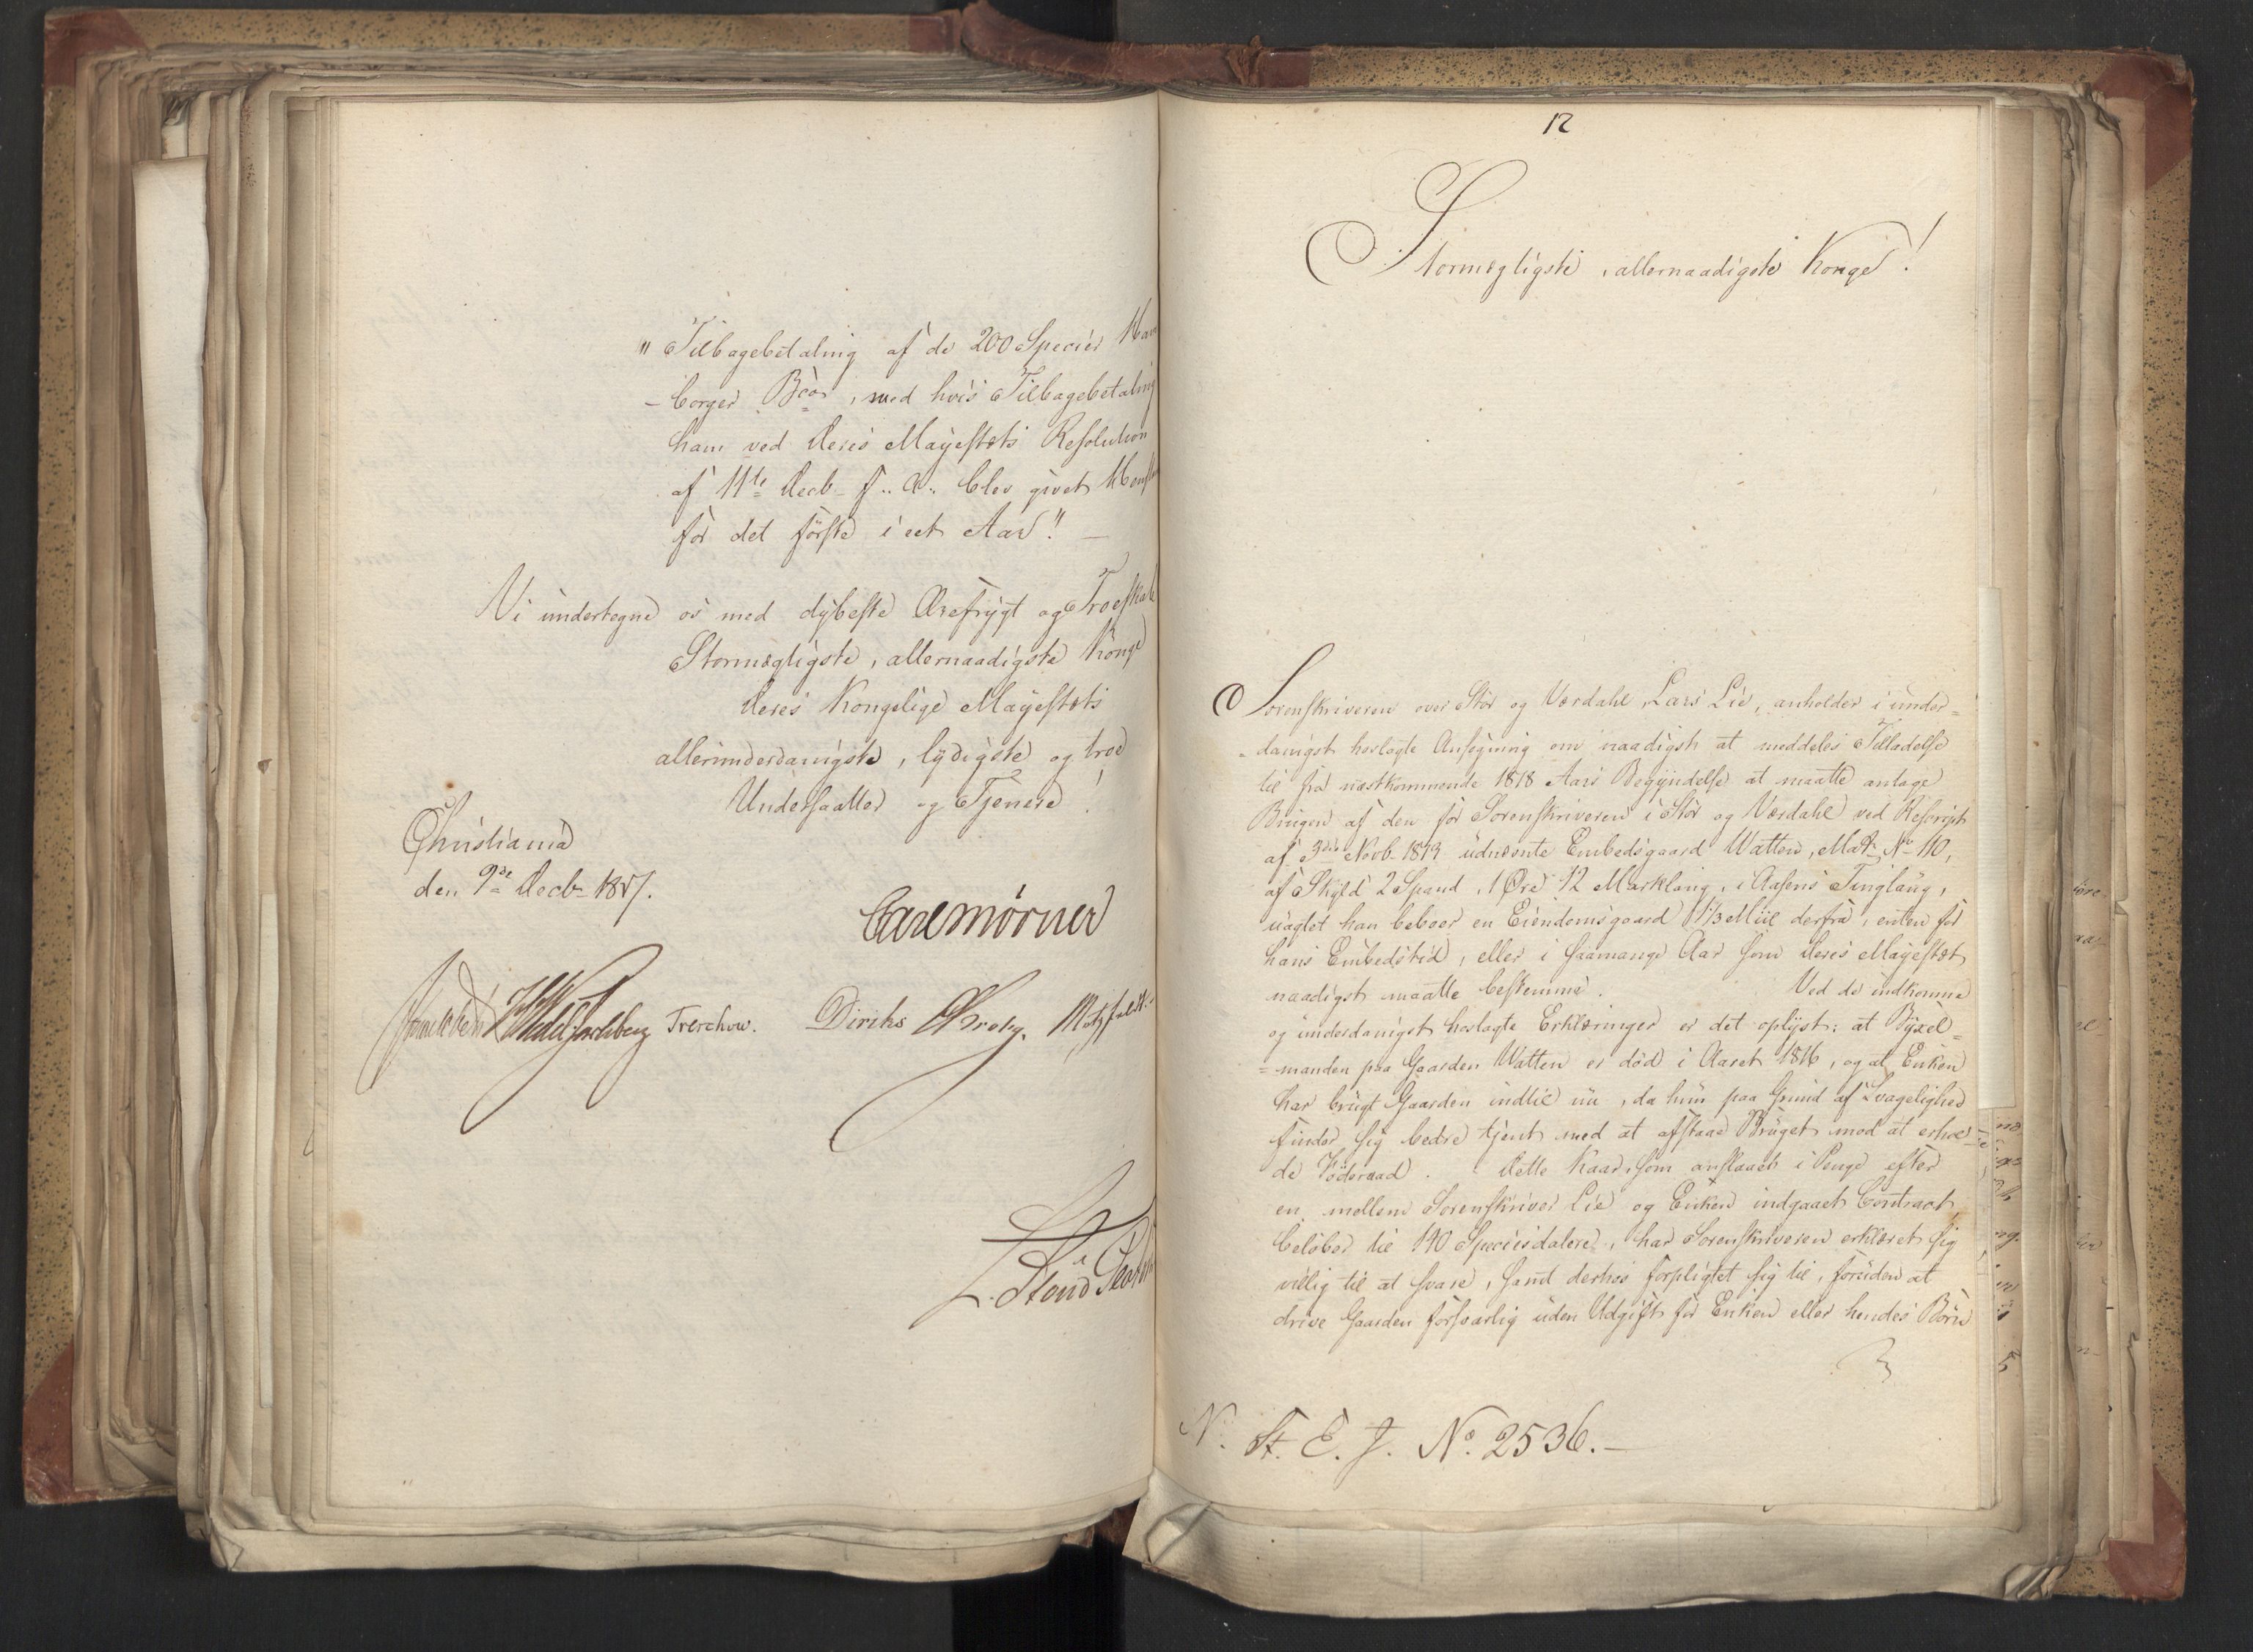 " Tilbagebetaling af de 200 Species Ham
-borger Bco, med hvis Tilbagebetaling
ham ved Deres Majestets Resolution
af 11te Decb. f. A. blev givet Henst
for det förste i eet Aar". —
Vi undertegne os med dybeste Ærefrygt og Troeskab
Stormægtigste, allernaadigste Konge
Deres Kongelige Majestets
allerunderdanigste, lydigste og troe
Undersaatter og Tjenere!
Christiania
den 9de Decb. 1817.
Carl Mörner
Sommerhielm Wedel Jarlsberg Treschow. Diriks Krog. Motzfeldt
12
Stormægtigste, allernaadigste Konge!
Sorenskriveren over Stör og Værdahl, Lars Lie, anholder i under=
=danigst hoslagte Ansøgning om naadigst at meddeles Tilladelse
til fra næstkommende 1818 Aars Begyndelse at maatte antage
Brugen af den for Sorenskriveren i Stör og Værdahl ved Rescript
af 3die Novb. 1813 udnævnte Embedsgaard Watten, Matr. No 110,
af Skyld 2 Spand, 1 Øre 12 Marklaug, i Aasens Tinglaug,
uagtet han beboer en Eiendomsgaard 1/3 Miil derfra, enten for
hans Embedstid, eller i saamange Aar som Deres Majestet
naadigst maatte bestemme. Ved de indkomne
og underdanigst hoslagte Erklæringer er det oplyst: at Byxel=
=manden paa Gaarden Watten er död i Aaret 1816, og at Enken
har brugt Gaarden indtil nu, da hun paa Grund af Svagelighed
finder sig bedre tjent med at afstaae Bruget mod at erhol=
de Föderaad. Dette Kaar, som anslaaet i Penge efter
en mellem Sorenskriver Lie og Enken indgaaet Contract
belöber til 140 Speciesdaler, har Sorenskriveren erklæret sig
villig til at svare, samt derhos forpligtet sig til, foruden at
drive Gaarden forsvarlig uden Udgift for Enken eller hendes Börn
N. St. E. J. No. 2536. —